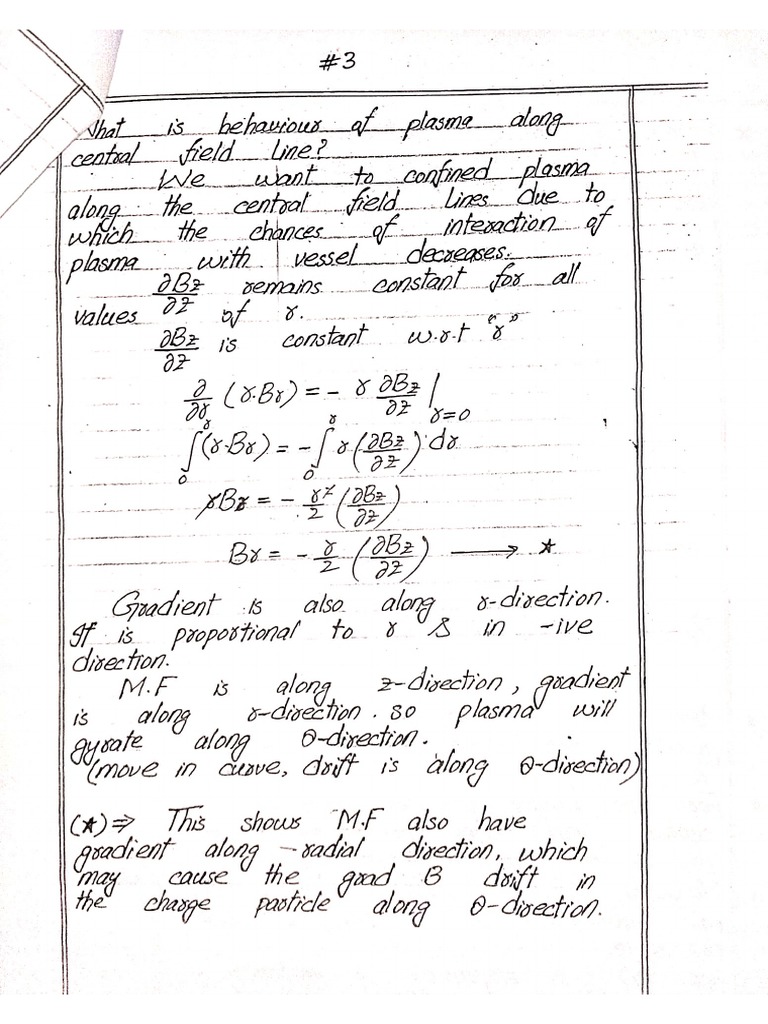 #3
What is behaviour of plasma along
central field line?
We want to confined plasma
along the central field lines due to
which the chances of interaction of
plasma with vessel decreases.
∂Bz/∂z remains constant for all
values of r.
∂Bz/∂z is constant w.r.t "r"
∂/∂r (r.Br) = - r ∂Bz/∂z |r=0
∫₀ʳ(r.Br) = -∫₀ʳ r(∂Bz/∂z) dr
rBr = - r²/2 (∂Bz/∂z)
Br = - r/2 (∂Bz/∂z) ⟶ *
Gradient is also along r-direction.
It is proportional to r & in -ive
direction.
M.F is along z-direction, gradient
is along r-direction. so plasma will
gyrate along θ-direction.
(move in curve, drift is along θ-direction)
(*)⇒ This shows M.F also have
gradient along -radial direction, which
may cause the grad B drift in
the charge particle along θ-direction.